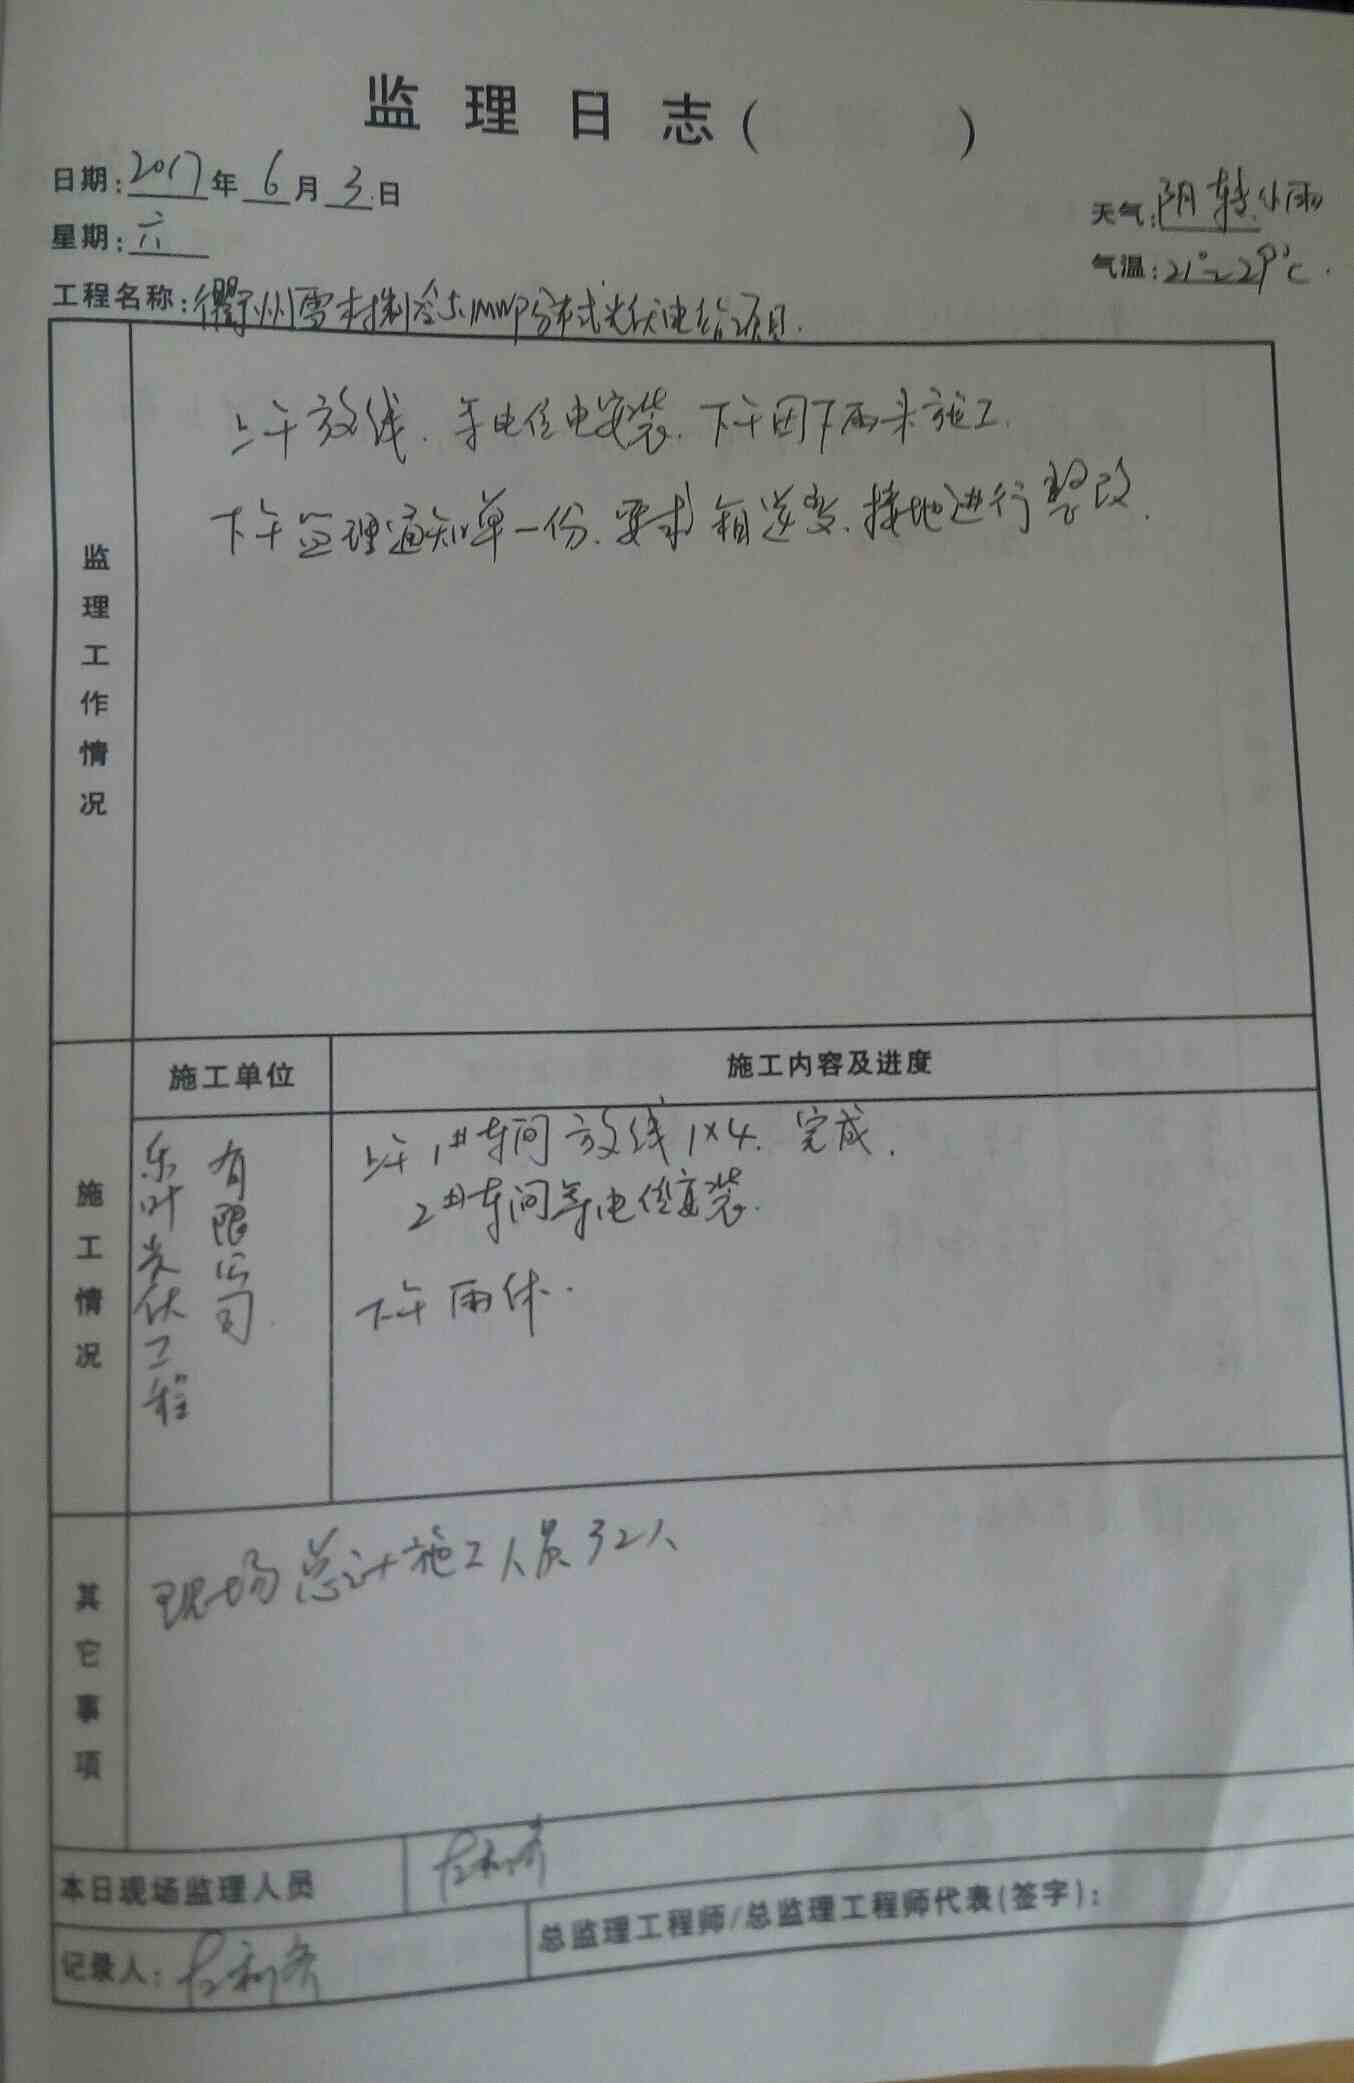 监理日志( )
日期:2017年6月3日
星期:六
天气:阴转小雨
气温:21°~29℃.
工程名称:衢州雪村制冷5.1MWP分布式光伏电站项目.
监理工作情况
上午放线.导电位电安装.下午因下雨未施工.
下午监理通知单一份.要求箱逆变.接地进行整改.
施工单位
施工内容及进度
施工情况
乐叶光伏工程
有限公司.
上午1#车间放线1×4.完成.
2#车间导电位安装.
下午雨休.
其它事项
现场总计施工人员32人
本日现场监理人员
记录人:
总监理工程师/总监理工程师代表(签字):